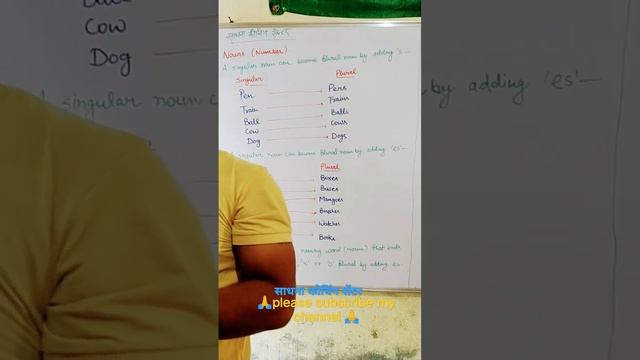 साधना कोचिंग सेन्टर
Nouns (Number)
A singular noun can become plural noun by adding 's'—
Singular Plural
Pen → Pens
Train → Trains
Ball → Balls
Cow → Cows
Dog → Dogs
singular noun can become plural noun by adding 'es'—
Plural
Boxes
Buses
Mangoes
Brushes
Watches
word (noun) that ends
plural by adding es
साधना कोचिंग सेंटर
🙏please subscribe my
channel 🙏
Cow
Dog
A singular noun c
by adding 'es'—